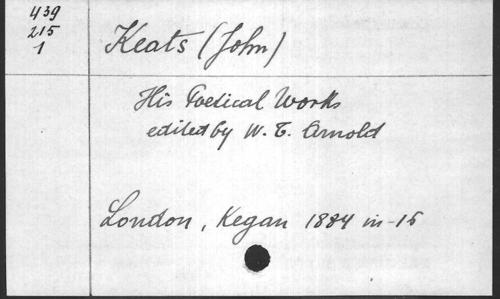 439
215
1
Keats (John)
His Poetical Works
edited by W. T. Arnold
London, Kegan 1884 in-15